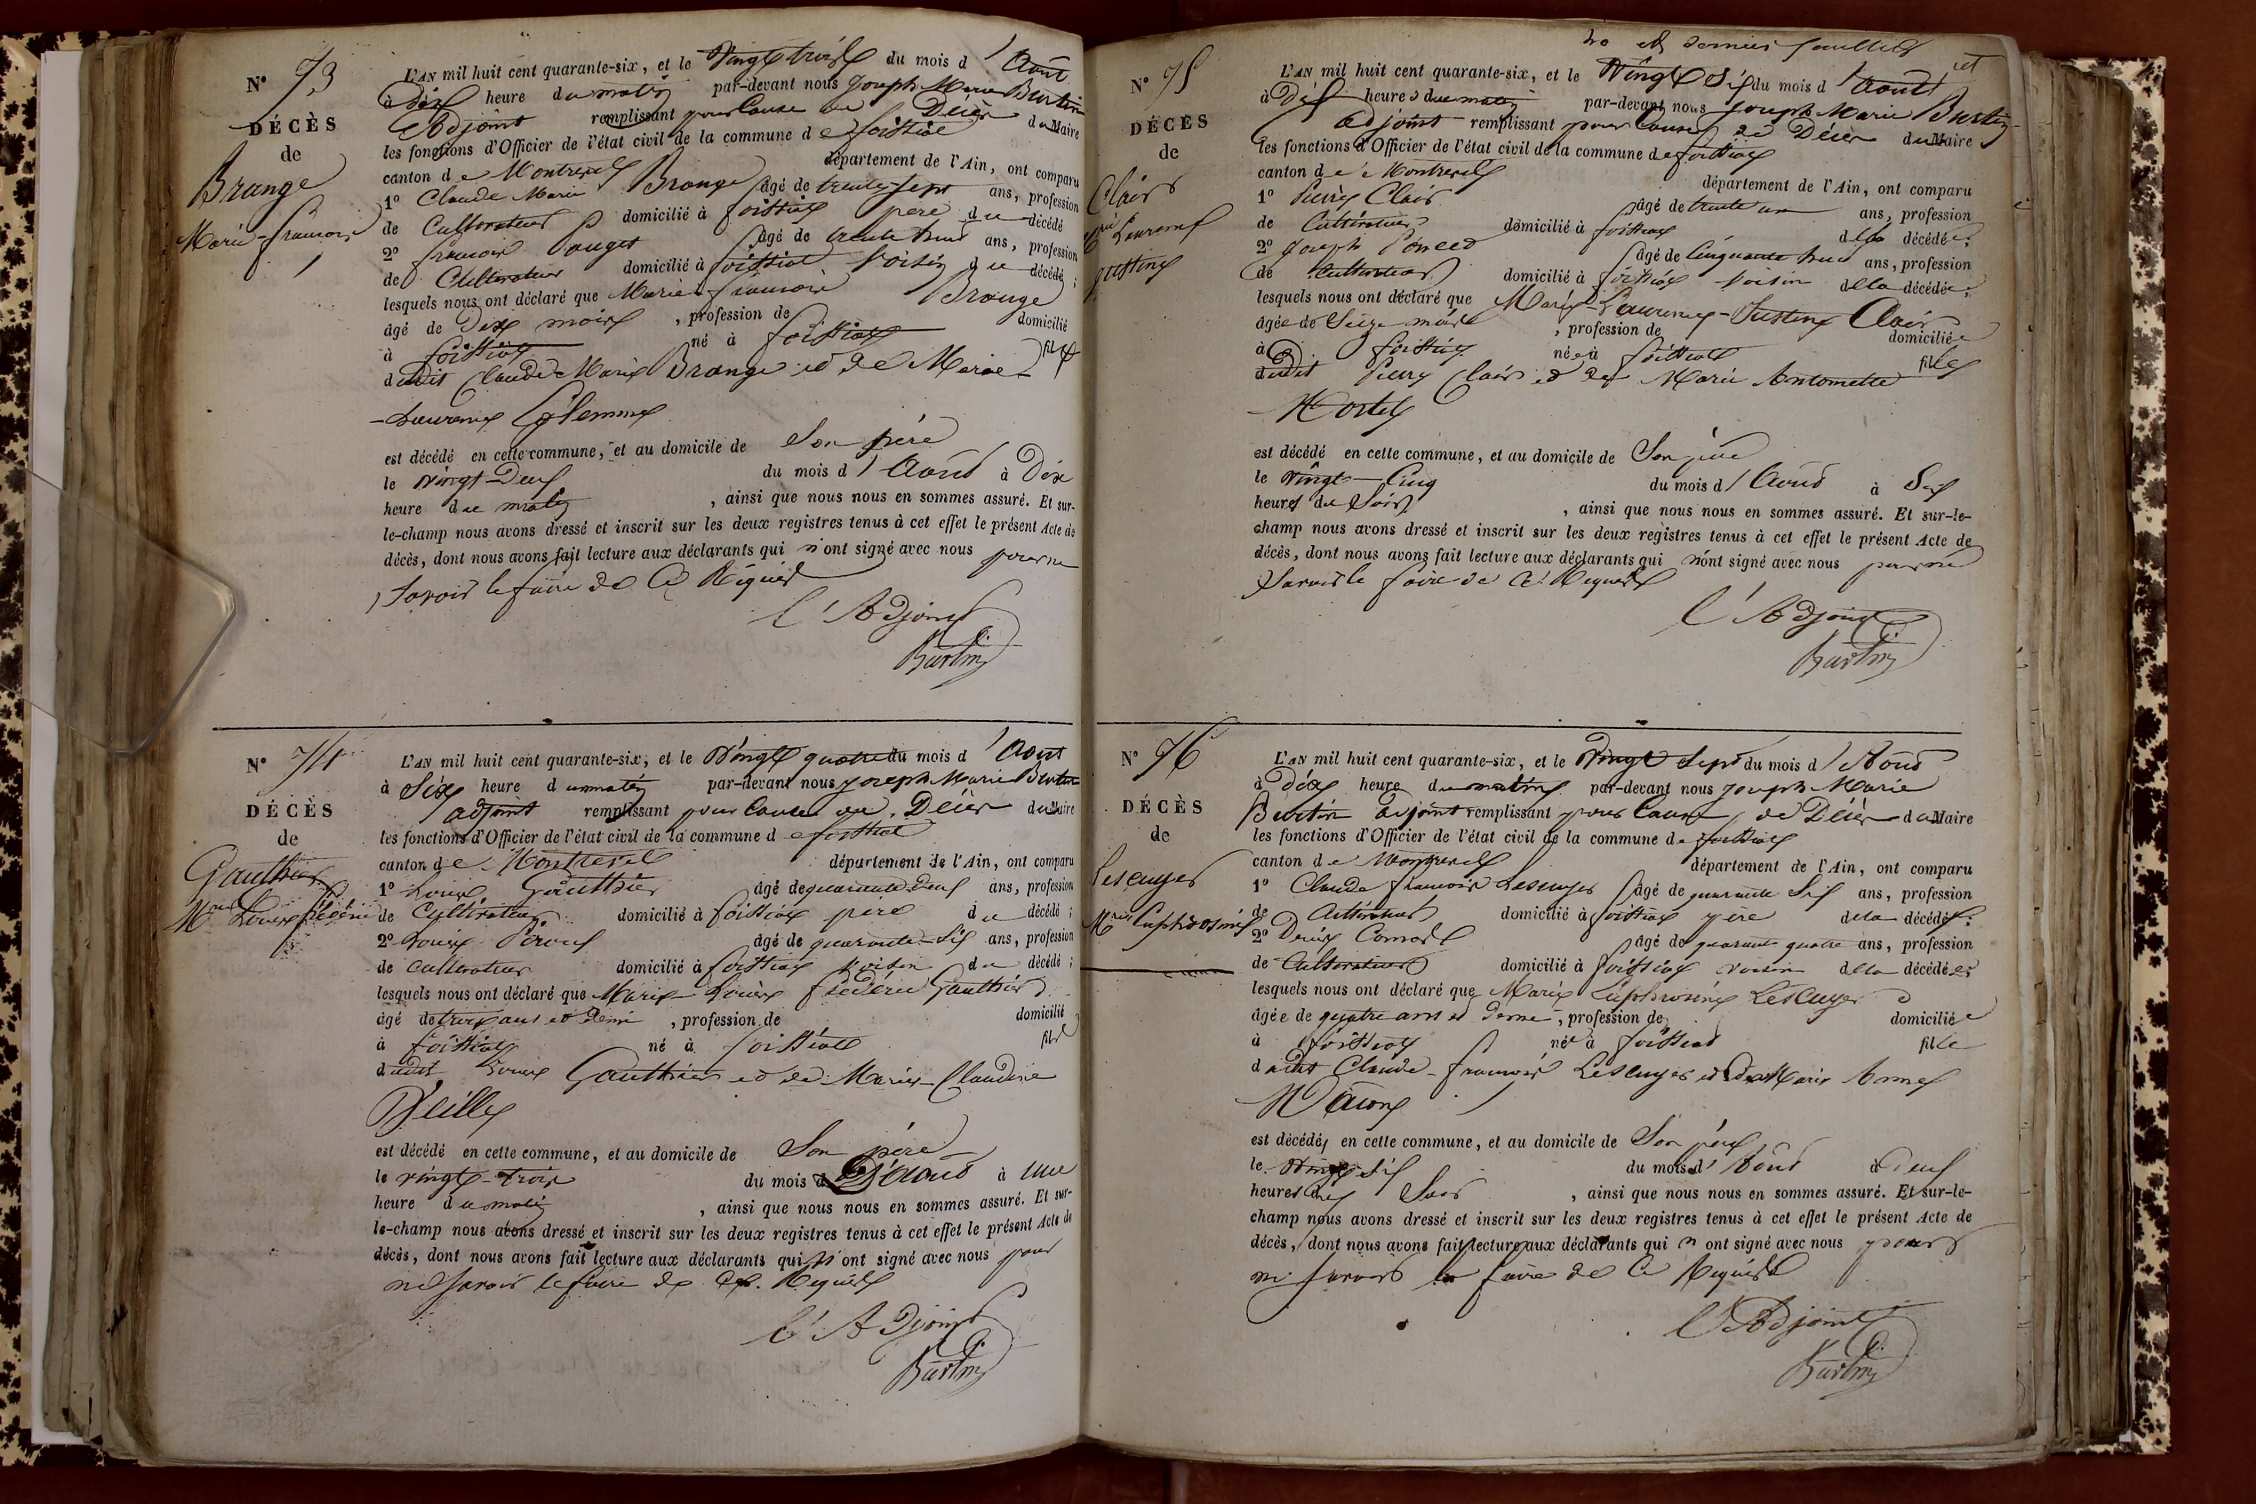 N° 73
DÉCÈS
de
Brange
Marie-françois
L'AN mil huit cent quarante-six, et le Vingt trois du mois d'Août
à Dix heure du matin par-devant nous Joseph Marie Burtin
Adjoint remplissant pour Cause de Décès du Maire
les fonctions d'Officier de l'état civil de la commune de foissiat
canton de Montrevel département de l'Ain, ont comparu
1° Claude Marie Brange âgé de trente sept ans, profession
de Cultivateur domicilié à foissiat père du décédé
2° françois âgé de trente ans, profession
de Cultivateur domicilié à foissiat Voisin du décédé ;
lesquels nous ont déclaré que Marie françois Brange
âgé de Dix mois , profession de domicilié
à foissiat né à foissiat fils
dudit Claude Marie Brange et de Marie
Laurence
est décédé en cette commune, et au domicile de Son père
le Vingt-Deux du mois d'Août à Dix
heure du matin , ainsi que nous nous en sommes assuré. Et sur-
le-champ nous avons dressé et inscrit sur les deux registres tenus à cet effet le présent Acte de
décès, dont nous avons fait lecture aux déclarants qui n'ont signé avec nous pour ne
Savoir le faire de Ce Requis
l'Adjoint
Burtin
N° 74
DÉCÈS
de
Gauthier
Louis frédéric
L'AN mil huit cent quarante-six, et le Vingt quatre du mois d'Août
à Six heure du matin par-devant nous Joseph Marie Burtin
adjoint remplissant pour Cause de Décès du Maire
les fonctions d'Officier de l'état civil de la commune de foissiat
canton de Montrevel département de l'Ain, ont comparu
1° Louis Gauthier âgé de quarante Deux ans, profession
de Cultivateur domicilié à foissiat père du décédé ;
2° Louis âgé de quarante-Six ans, profession
de Cultivateur domicilié à foissiat voisin du décédé ;
lesquels nous ont déclaré que Marie Louis frédéric Gauthier
âgé de trois ans et Demi , profession de domicilié
à foissiat né à foissiat fils
dudit Louis Gauthier et de Marie-Claudine
est décédé en cette commune, et au domicile de Son père
le vingt-trois du mois d'Août à une
heure du matin , ainsi que nous nous en sommes assuré. Et sur-
le-champ nous avons dressé et inscrit sur les deux registres tenus à cet effet le présent Acte de
décès, dont nous avons fait lecture aux déclarants qui n'ont signé avec nous pour
ne Savoir le faire de Ce Requis
l'Adjoint
Burtin
et dernier feuillet
N° 75
DÉCÈS
de
Clair
Laurence
Justine
L'AN mil huit cent quarante-six, et le Vingt Six du mois d'Août
à Dix heures du matin par-devant nous Joseph Marie Burtin
adjoint remplissant pour Cause de Décès du Maire
les fonctions d'Officier de l'état civil de la commune de foissiat
canton de Montrevel département de l'Ain, ont comparu
1° Pierre Clair âgé de trente un ans, profession
de Cultivateur domicilié à foissiat de la décédée ;
2° Joseph Poncet âgé de Cinquante ans, profession
de Cultivateur domicilié à foissiat Voisin de la décédée ;
lesquels nous ont déclaré que Marie-Laurence-Justine Clair
âgée de Seize mois , profession de domiciliée
à foissiat née à foissiat fille
dudit Pierre Clair et de Marie Antoinette
est décédé en cette commune, et au domicile de Son père
le Vingt-Cinq du mois d'Août à Six
heures du Soir , ainsi que nous nous en sommes assuré. Et sur-le-
champ nous avons dressé et inscrit sur les deux registres tenus à cet effet le présent Acte de
décès, dont nous avons fait lecture aux déclarants qui n'ont signé avec nous pour ne
Savoir le faire de Ce Requis
l'Adjoint
Burtin
N° 76
DÉCÈS
de
Lescuyer
Euphrosine
L'AN mil huit cent quarante-six, et le Vingt Sept du mois d'Août
à Dix heure du matin par-devant nous Joseph Marie
Burtin adjoint remplissant pour Cause de Décès du Maire
les fonctions d'Officier de l'état civil de la commune de foissiat
canton de Montrevel département de l'Ain, ont comparu
1° Claude françois Lescuyer âgé de quarante Six ans, profession
de Cultivateur domicilié à foissiat père de la décédée ;
2° Denis âgé de quarante quatre ans, profession
de Cultivateur domicilié à foissiat voisin de la décédée
lesquels nous ont déclaré que Marie Euphrosine Lescuyer
âgée de quatre ans et demi , profession de domiciliée
à foissiat née à foissiat fille
dudit Claude-françois Lescuyer et de Marie Anne
est décédée en cette commune, et au domicile de Son père
le Vingt-Six du mois d'Août à Deux
heures du Soir , ainsi que nous nous en sommes assuré. Et sur-le-
champ nous avons dressé et inscrit sur les deux registres tenus à cet effet le présent Acte de
décès, dont nous avons fait lecture aux déclarants qui n'ont signé avec nous pour
ne Savoir le faire de Ce Requis
l'Adjoint
Burtin